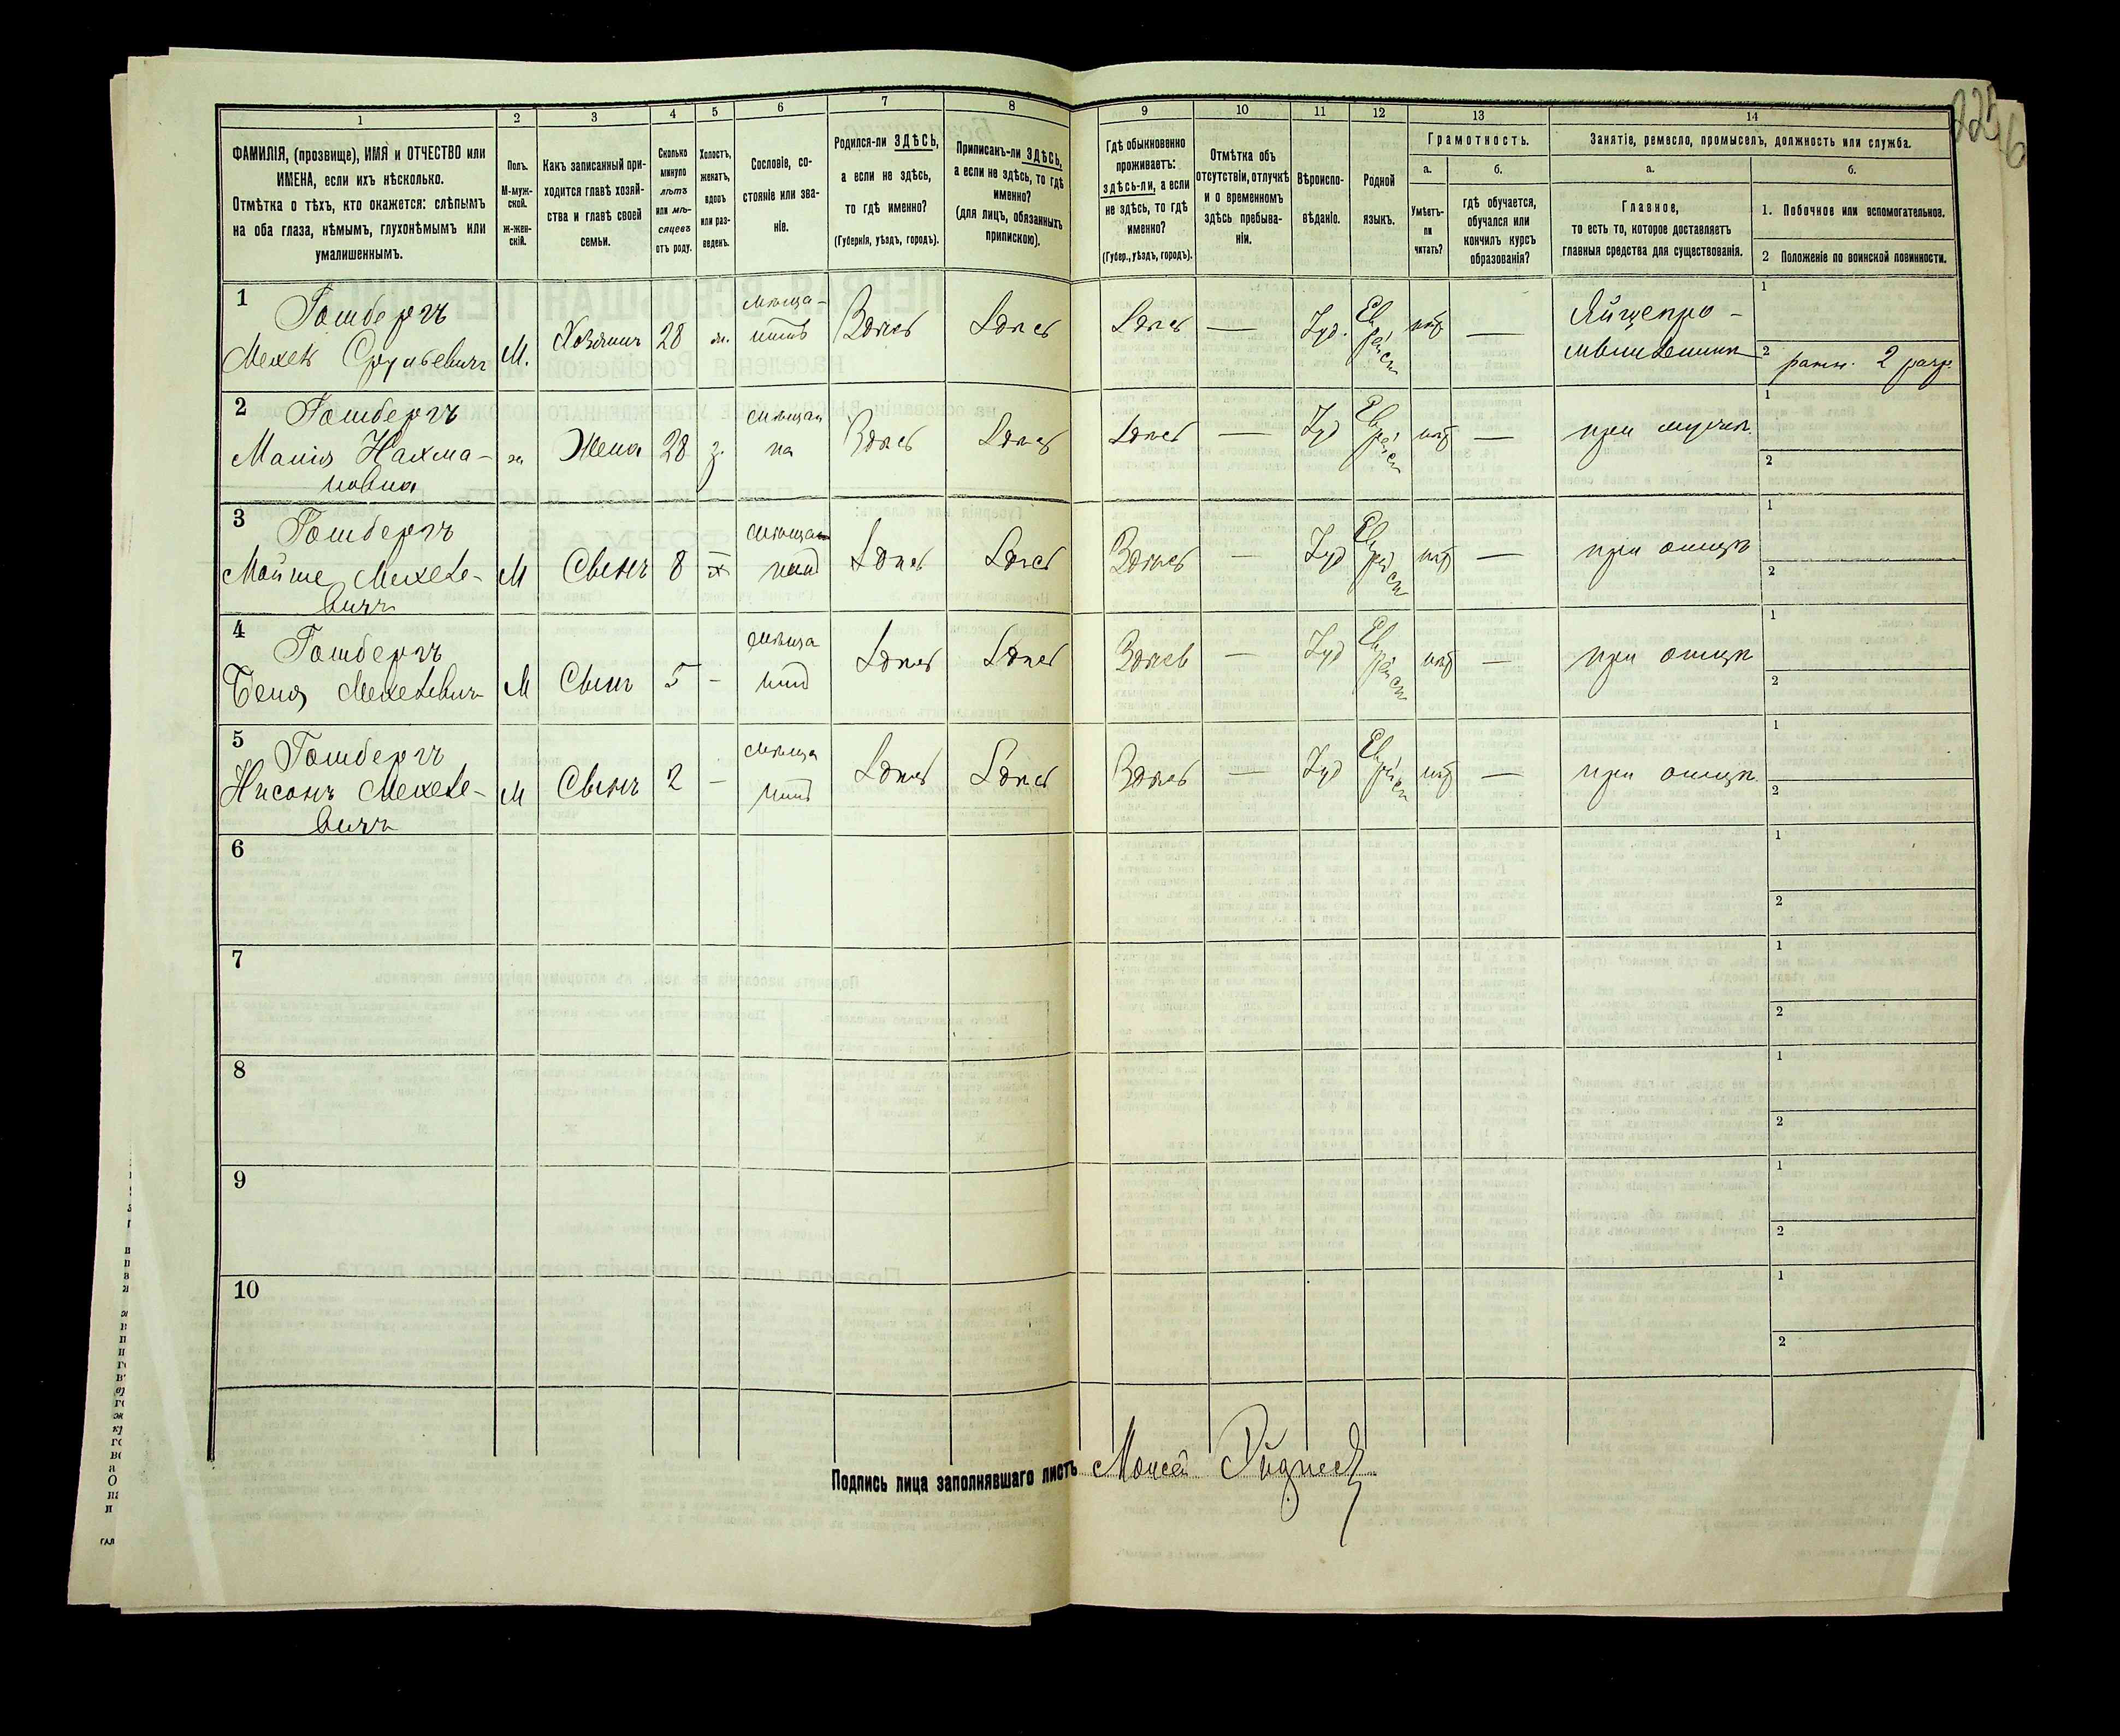 1 2 3 4 5 6 7 8 9 10 11 12 13 14
ФАМИЛІЯ, (прозвище), ИМЯ и ОТЧЕСТВО или
ИМЕНА, если ихъ нѣсколько.
Отмѣтка о тѣхъ, кто окажется: слѣпымъ
на оба глаза, нѣмымъ, глухонѣмымъ или
умалишеннымъ.
Полъ.
М-муж-
ской.
ж-жен-
скій.
Какъ записанный при-
ходится главѣ хозяй-
ства и главѣ своей
семьи.
Сколько
минуло
лѣтъ
или мѣ-
сяцевъ
отъ роду.
Холостъ,
женатъ,
вдовъ
или раз-
веденъ.
Сословіе, со-
стояніе или зва-
ніе.
Родился-ли ЗДѢСЬ,
а если не здѣсь,
то гдѣ именно?
(Губернія, уѣздъ, городъ).
Приписанъ-ли ЗДѢСЬ,
а если не здѣсь, то гдѣ
именно?
(для лицъ, обязанныхъ
припискою).
Гдѣ обыкновенно
проживаетъ:
здѣсь-ли, а если
не здѣсь, то гдѣ
именно?
(Губер., уѣздъ, городъ).
Отмѣтка объ
отсутствіи, отлучкѣ
и о временномъ
здѣсь пребыва-
ніи.
Вѣроиспо-
вѣданіе.
Родной
языкъ.
Грамотность.
а.
Умѣетъ-
ли
читать?
б.
гдѣ обучается,
обучался или
кончилъ курсъ
образованія?
Занятіе, ремесло, промыселъ, должность или служба.
а.
Главное,
то есть то, которое доставляетъ
главныя средства для существованія.
б.
1. Побочное или вспомогательное.
2 Положеніе по воинской повинности.
1
Гольбергъ
М. Хозяинъ 28 ж. мѣща-
нинъ Здѣсь Здѣсь Здѣсь — Іуд. Еврейск нѣт — Яйцепро-
мышленник
1
2 ратн. 2 разр.
2
Гольбергъ
Нахма-
новна
ж Жена 28 з. мѣщан
ка Здѣсь Здѣсь Здѣсь — Іуд Еврейск нѣт — при мужѣ
1
2
3
Гольбергъ
М Сынъ 8 х мѣщан
нин Здѣсь Здѣсь Здѣсь — Іуд Еврейск нѣт — при отцѣ
1
2
4
Гольбергъ
М Сынъ 5 — мѣща
нин Здѣсь Здѣсь Здѣсь — Іуд Еврейск нѣт — при отцѣ
1
2
5
Гольбергъ
Нисонъ
М Сынъ 2 — мѣща
нин Здѣсь Здѣсь Здѣсь — Іуд Еврейск нѣт — при отцѣ
1
2
6
1
2
7
1
2
8
1
2
9
1
2
10
1
2
Подпись лица заполнявшаго листъ Моисей